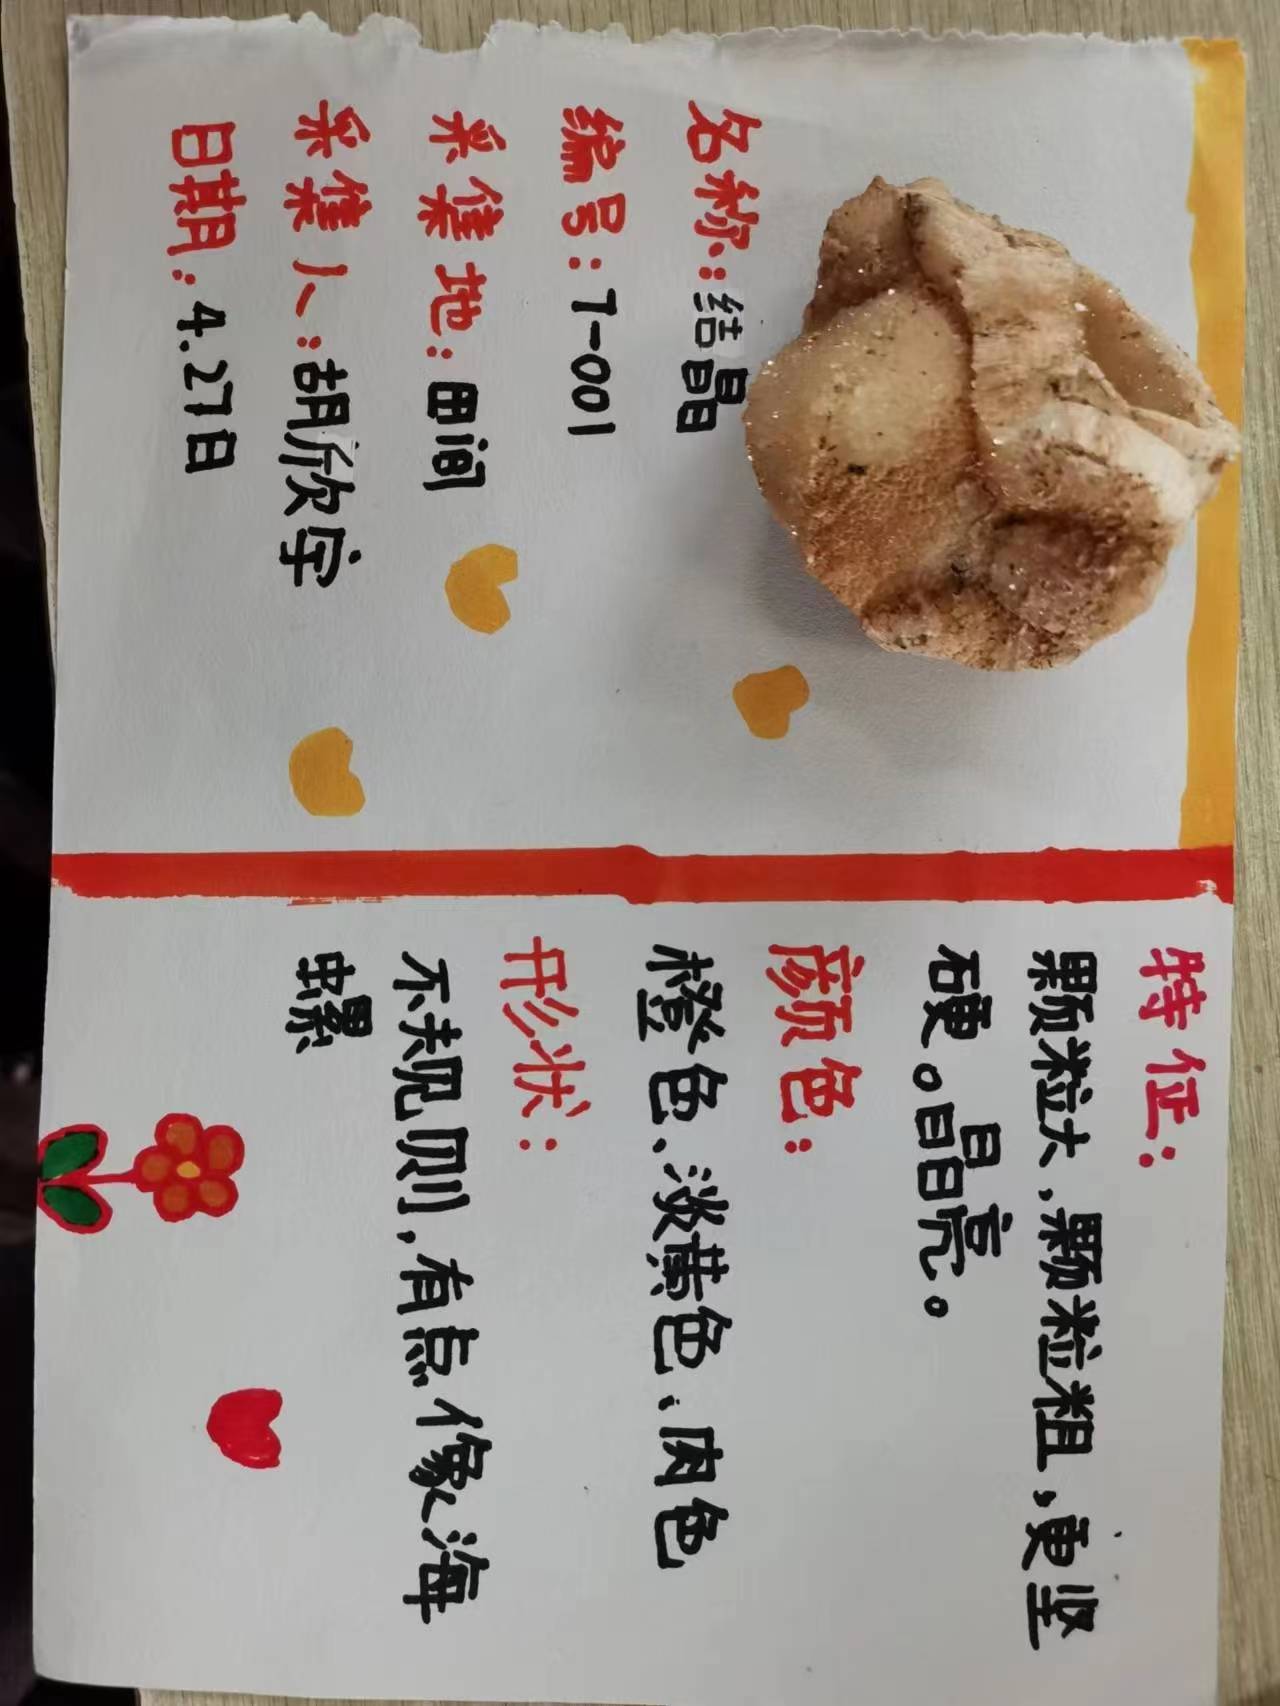 名称:结晶
编号:T-001
采集地:田间
采集人:胡欣宇
日期:4.27日
特征:
颗粒大、颗粒粗,更坚
硬。晶亮。
颜色:
橙色、淡黄色、肉色
形状:
不规则,有点像海
螺